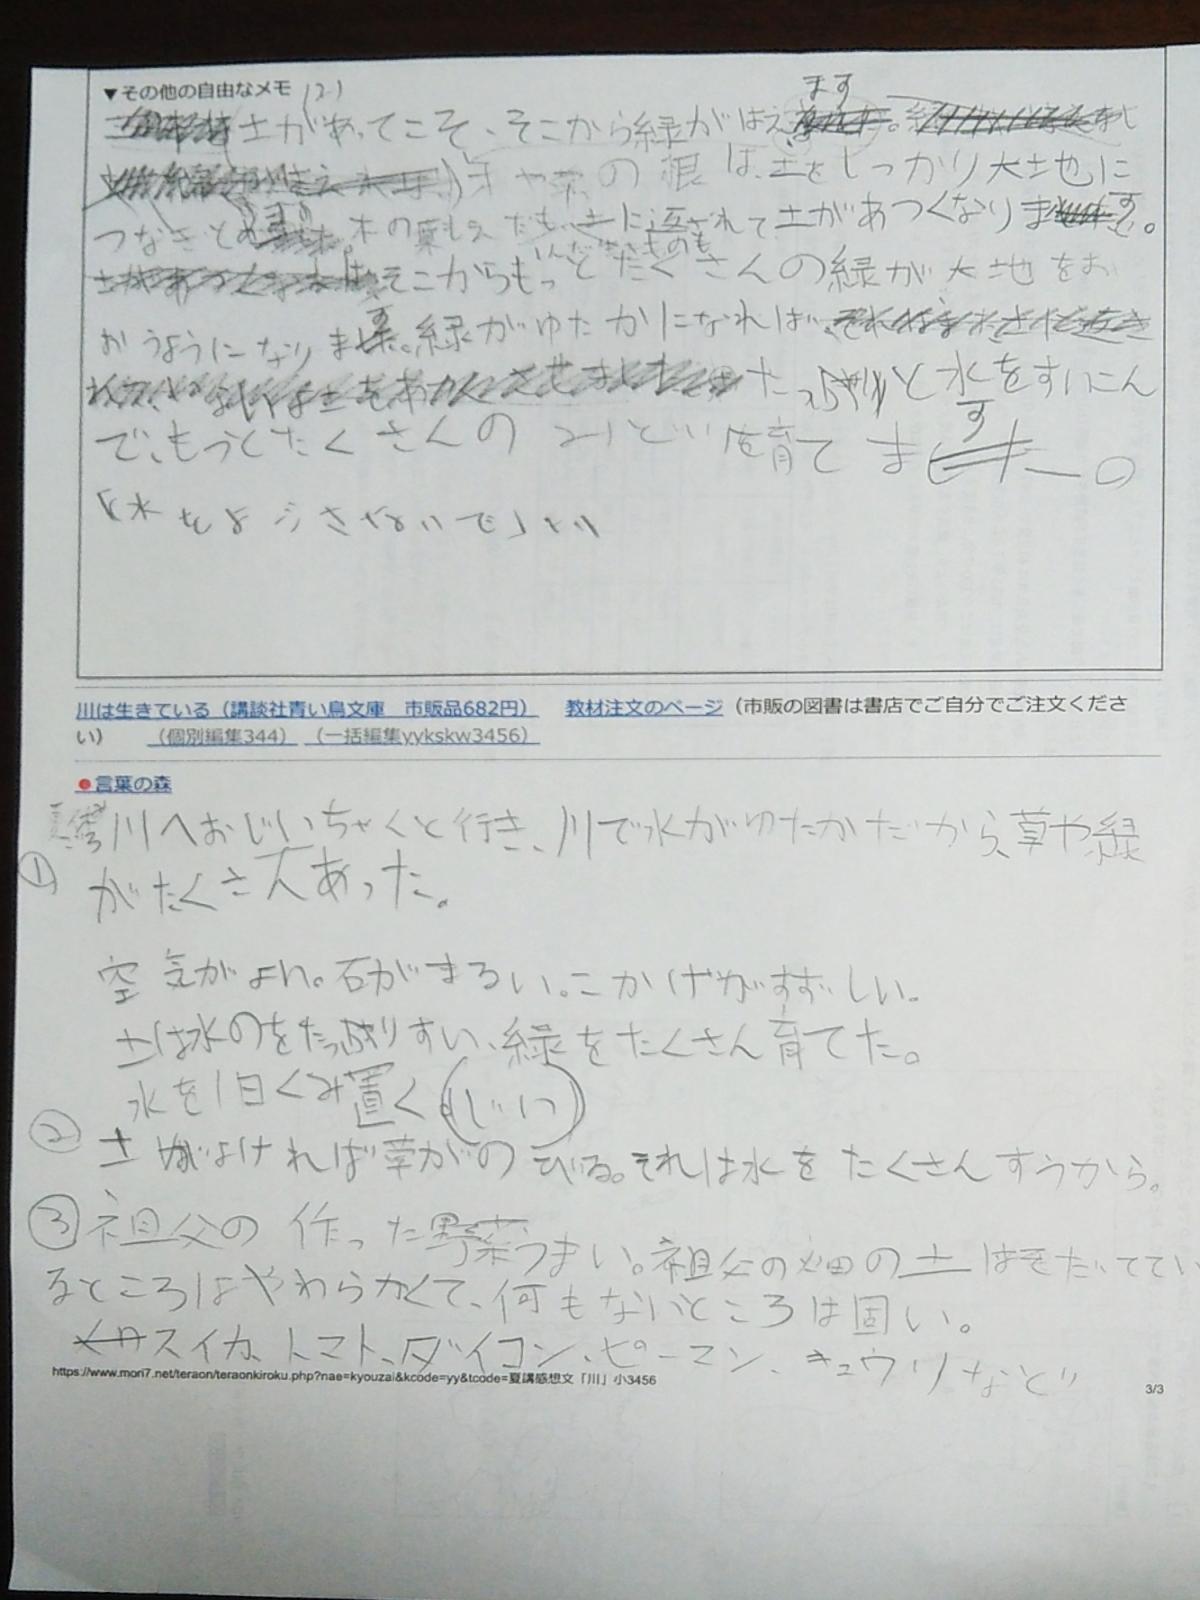 ▼その他の自由なメモ (2)
土があってこそ、そこから緑がはえます。
の根は、土をしっかり大地に
つなぎとめます。木の葉も土に返されて土があつくなります。
そこからもっとたくさんの緑が大地をお
おうようになります。緑がゆたかになれば、
たっぷりと水をすいこん
で、もっとたくさんのみどりを育てます。
「水をよごさないで」
川は生きている（講談社青い鳥文庫　市販品682円）　教材注文のページ（市販の図書は書店でご自分でご注文くださ
い）　（個別編集344）　（一括編集yykskw3456）
●言葉の森
① 川へおじいちゃんと行き、川で水がゆたかだから、草や緑
がたくさんあった。
空気がよい。石がまるい。こかげがすずしい。
土は水のをたっぷりすい、緑をたくさん育てた。
水を1日くみ置く(じいじ)
② 土がよければ草がのびる。それは水をたくさんすうから。
③ 祖父の作った野菜うまい。祖父の畑の土はそだててい
るところはやわらかくて、何もないところは固い。
スイカ、トマト、ダイコン、ピーマン、キュウリなど
https://www.mori7.net/teraon/teraonkiroku.php?nae=kyouzai&kcode=yy&tcode=夏講感想文「川」小3456
3/3